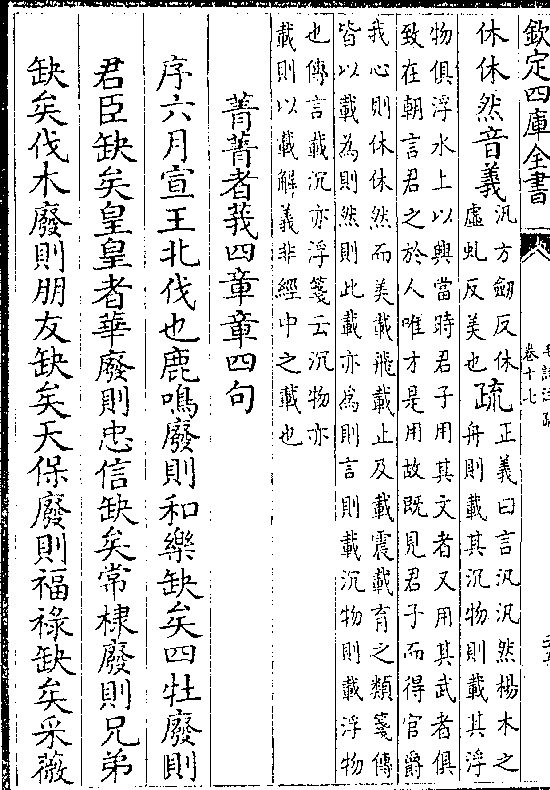 欽定四庫全書
卷十七
休休然音義汎方劒反休虛虬反美也疏正義曰言汎汎然楊木之舟則載其沉物則載其浮
物俱浮水上以興當時君子用其文者又用其武者俱
致在朝言君之於人唯才是用故既見君子而得官爵
我心則休休然而美載飛載止及載震載育之類箋傳
皆以載為則然則此載亦為則言則載沉物則載浮物
也傳言載沉亦浮箋云沉物亦
載則以載解義非經中之載也
菁菁者莪四章章四句
序六月宣王北伐也鹿鳴廢則和樂缺矣四牡廢則
君臣缺矣皇皇者華廢則忠信缺矣常棣廢則兄弟
缺矣伐木廢則朋友缺矣天保廢則福祿缺矣采薇